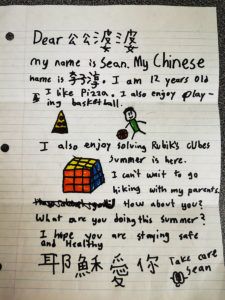 Dear 公公婆婆
my name is Sean. My Chinese
name is 李子淳. I am 12 years old
I like Pizza. I also enjoy play-
ing basketball.
I also enjoy solving Rubik's cubes
Summer is here.
I can't wait to go
hiking with my parents.
How about you?
What are you doing this summer?
I hope you are staying safe
and Healthy
耶穌愛你 Take care
Sean